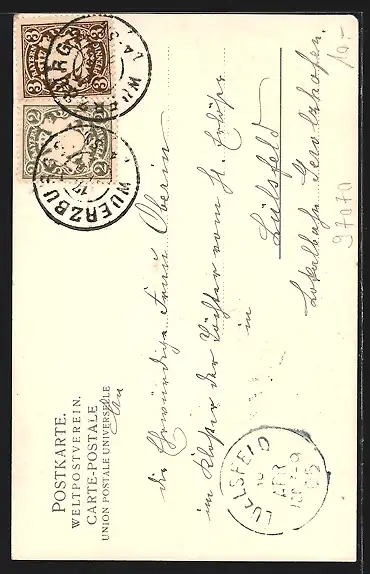 POSTKARTE.
WELTPOSTVEREIN.
CARTE-POSTALE
UNION POSTALE UNIVERSELLE
An
die Ehrwürdige Frau Oberin
im Kloster der Töchter vom hl. Erlöser
in
Lülsfeld
Lokalbahn Gerolzhofen.
10.-
97070
BAYERN
3 3
BAYERN
2 2
WUERZBURG
WUERZBURG
LUELSFELD
APR
05